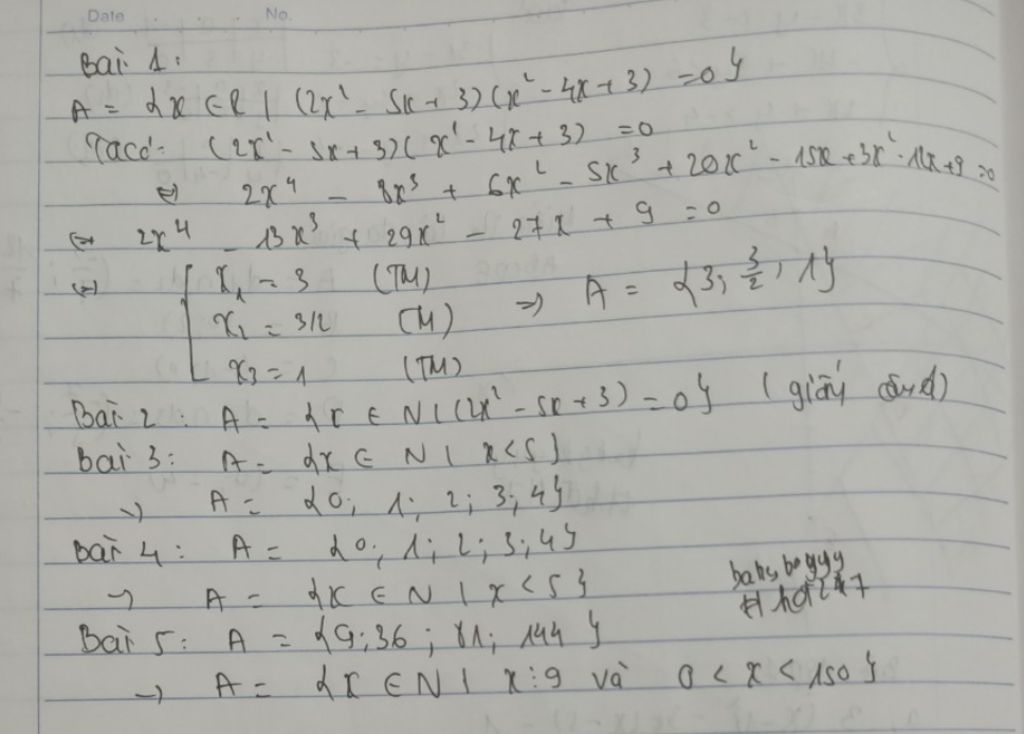 Date No.
Bài 1:
A = {x ∈ R | (2x² - 5x + 3)(x² - 4x + 3) = 0}
Ta có: (2x² - 5x + 3)(x² - 4x + 3) = 0
⇔ 2x⁴ - 8x³ + 6x² - 5x³ + 20x² - 15x + 3x² - 12x + 9 = 0
⇔ 2x⁴ - 13x³ + 29x² - 27x + 9 = 0
⇔ [ x₁ = 3 (TM) ⇒ A = {3; 3/2; 1}
x₂ = 3/2 (TM)
x₃ = 1 (TM)
Bài 2: A = {x ∈ N | (2x² - 5x + 3) = 0} (giống câu d)
Bài 3: A = {x ∈ N | x < 5}
→ A = {0; 1; 2; 3; 4}
Bài 4: A = {0; 1; 2; 3; 4}
→ A = {x ∈ N | x < 5}
babyboyyy
# hd1247
Bài 5: A = {9; 36; 81; 144}
→ A = {x ∈ N | x ⋮ 9 và 0 < x < 150}